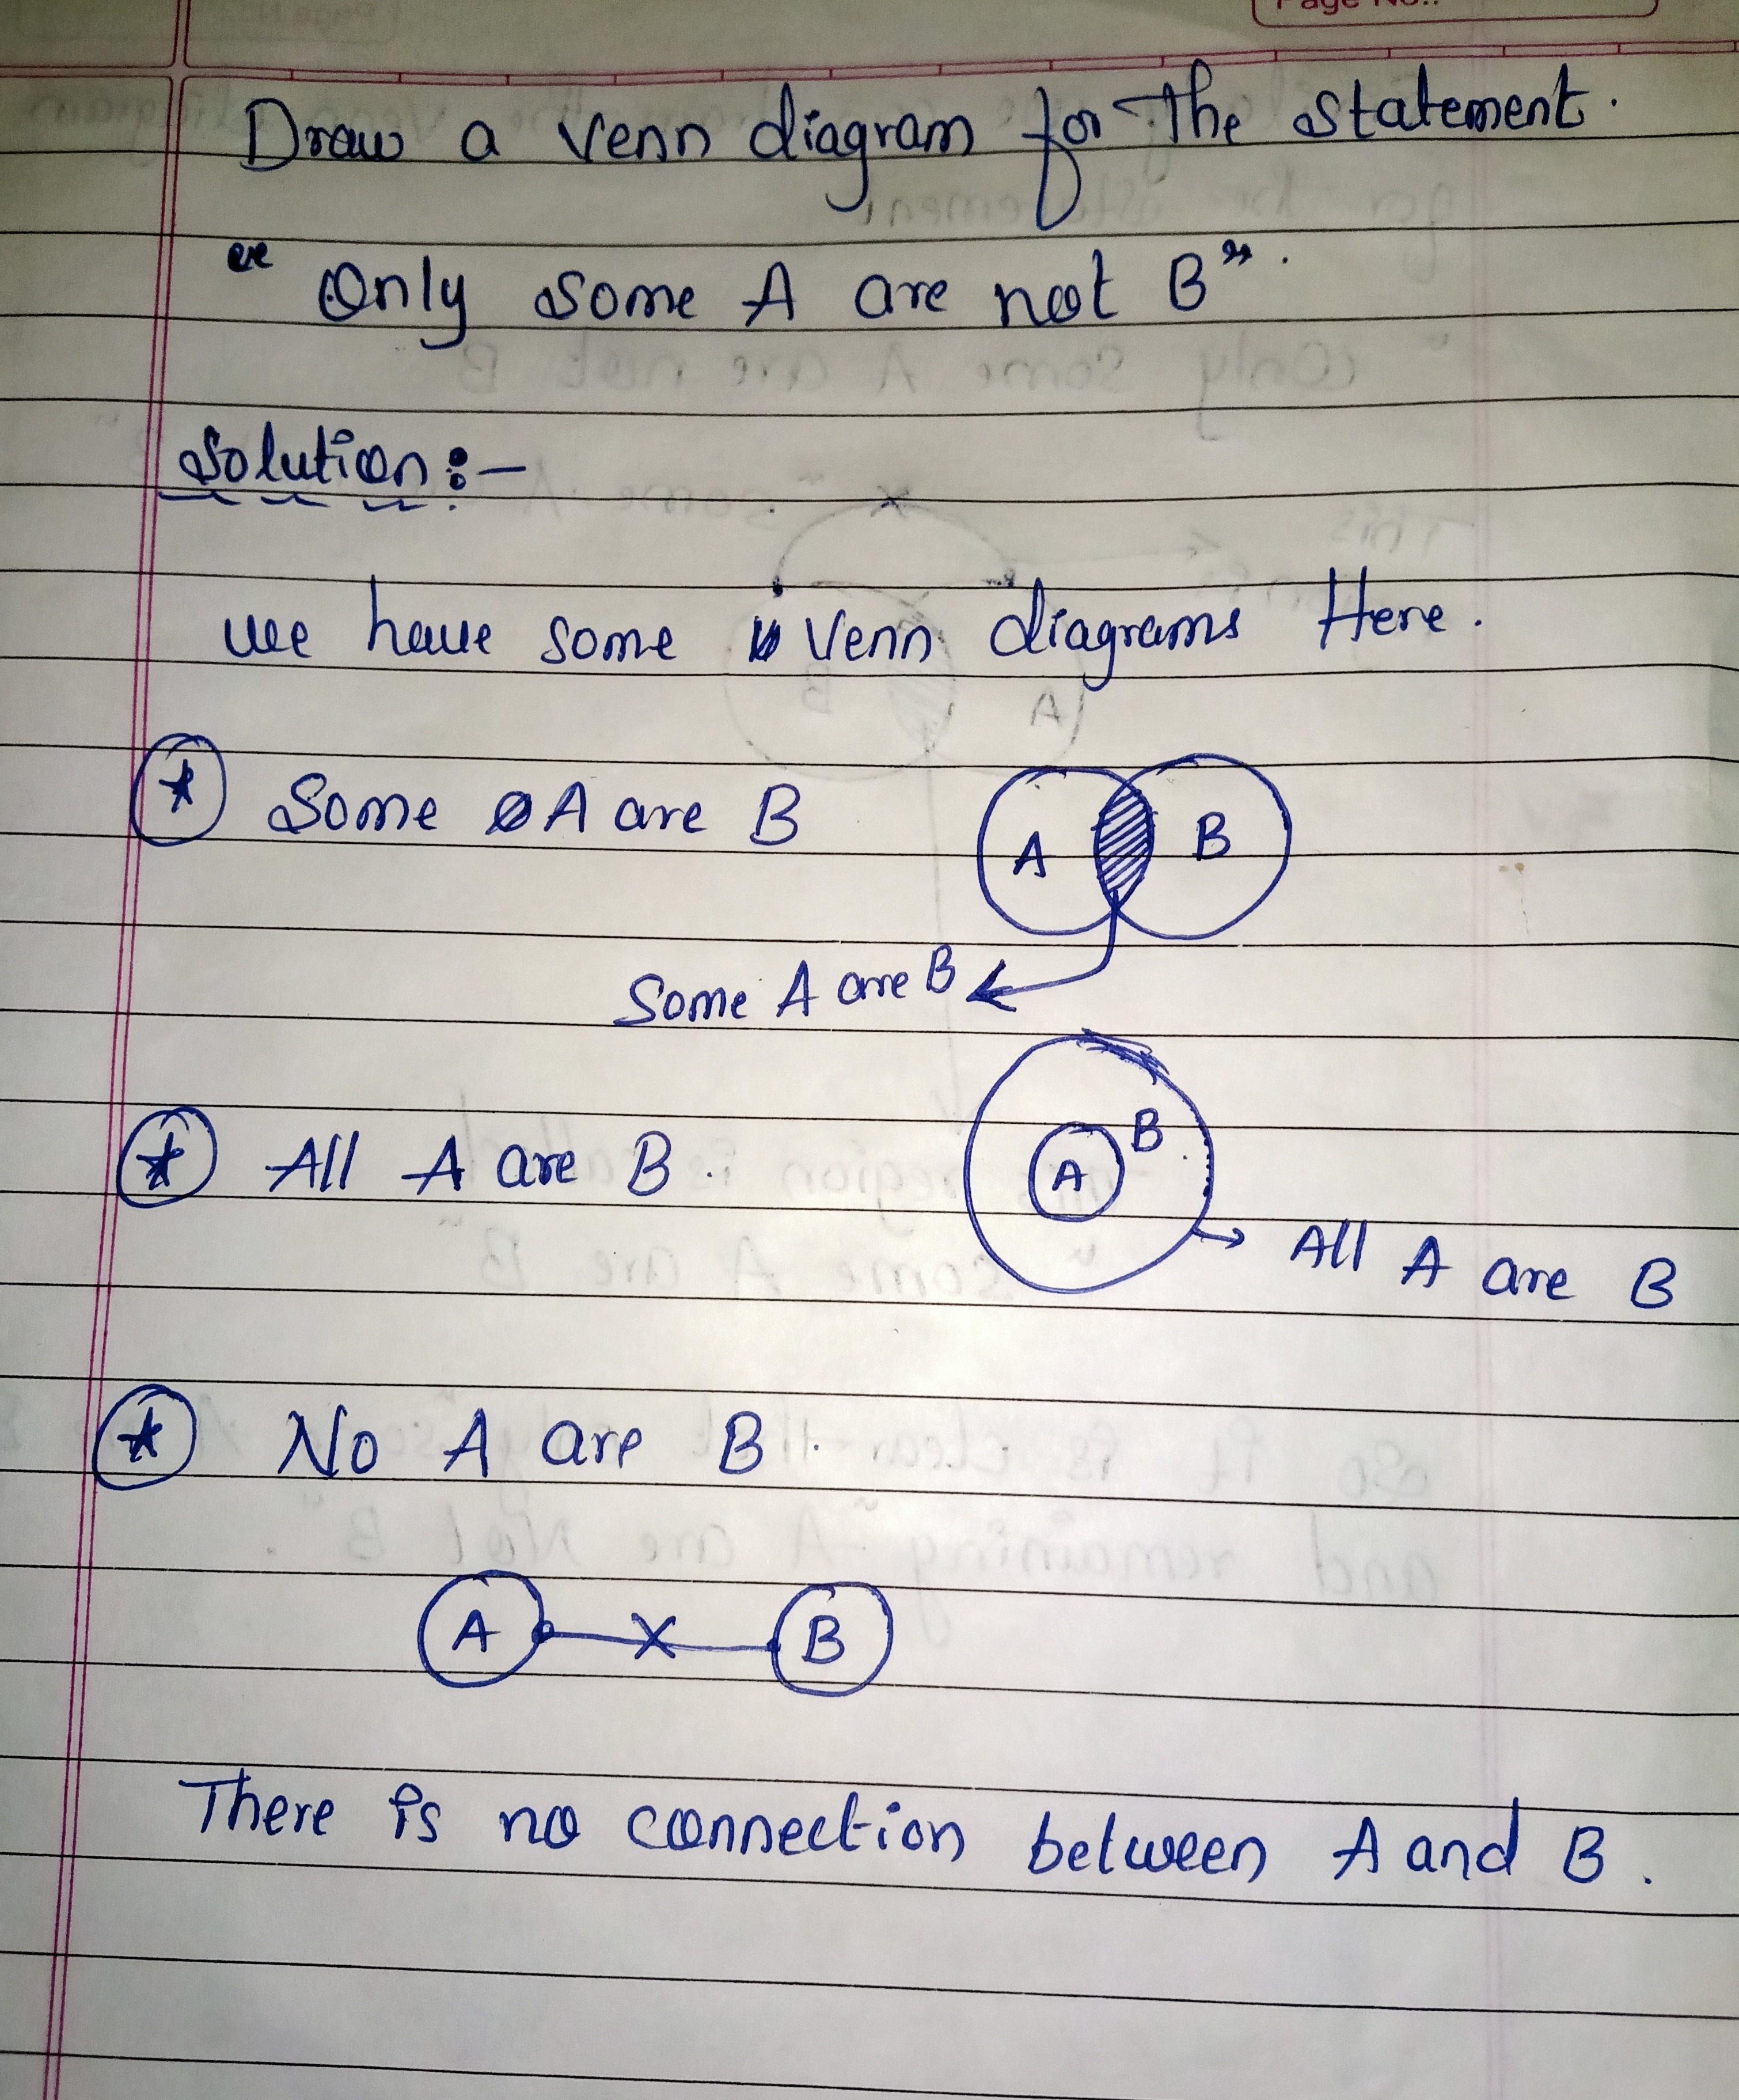 Page No.:
Draw a venn diagram for the statement.
“ Only some A are not B”.
Solution :-
we have some Venn diagrams Here.
* Some A are B
A B
Some A are B
* All A are B.
A B
All A are B
* No A are B.
A X B
There is no connection between A and B.